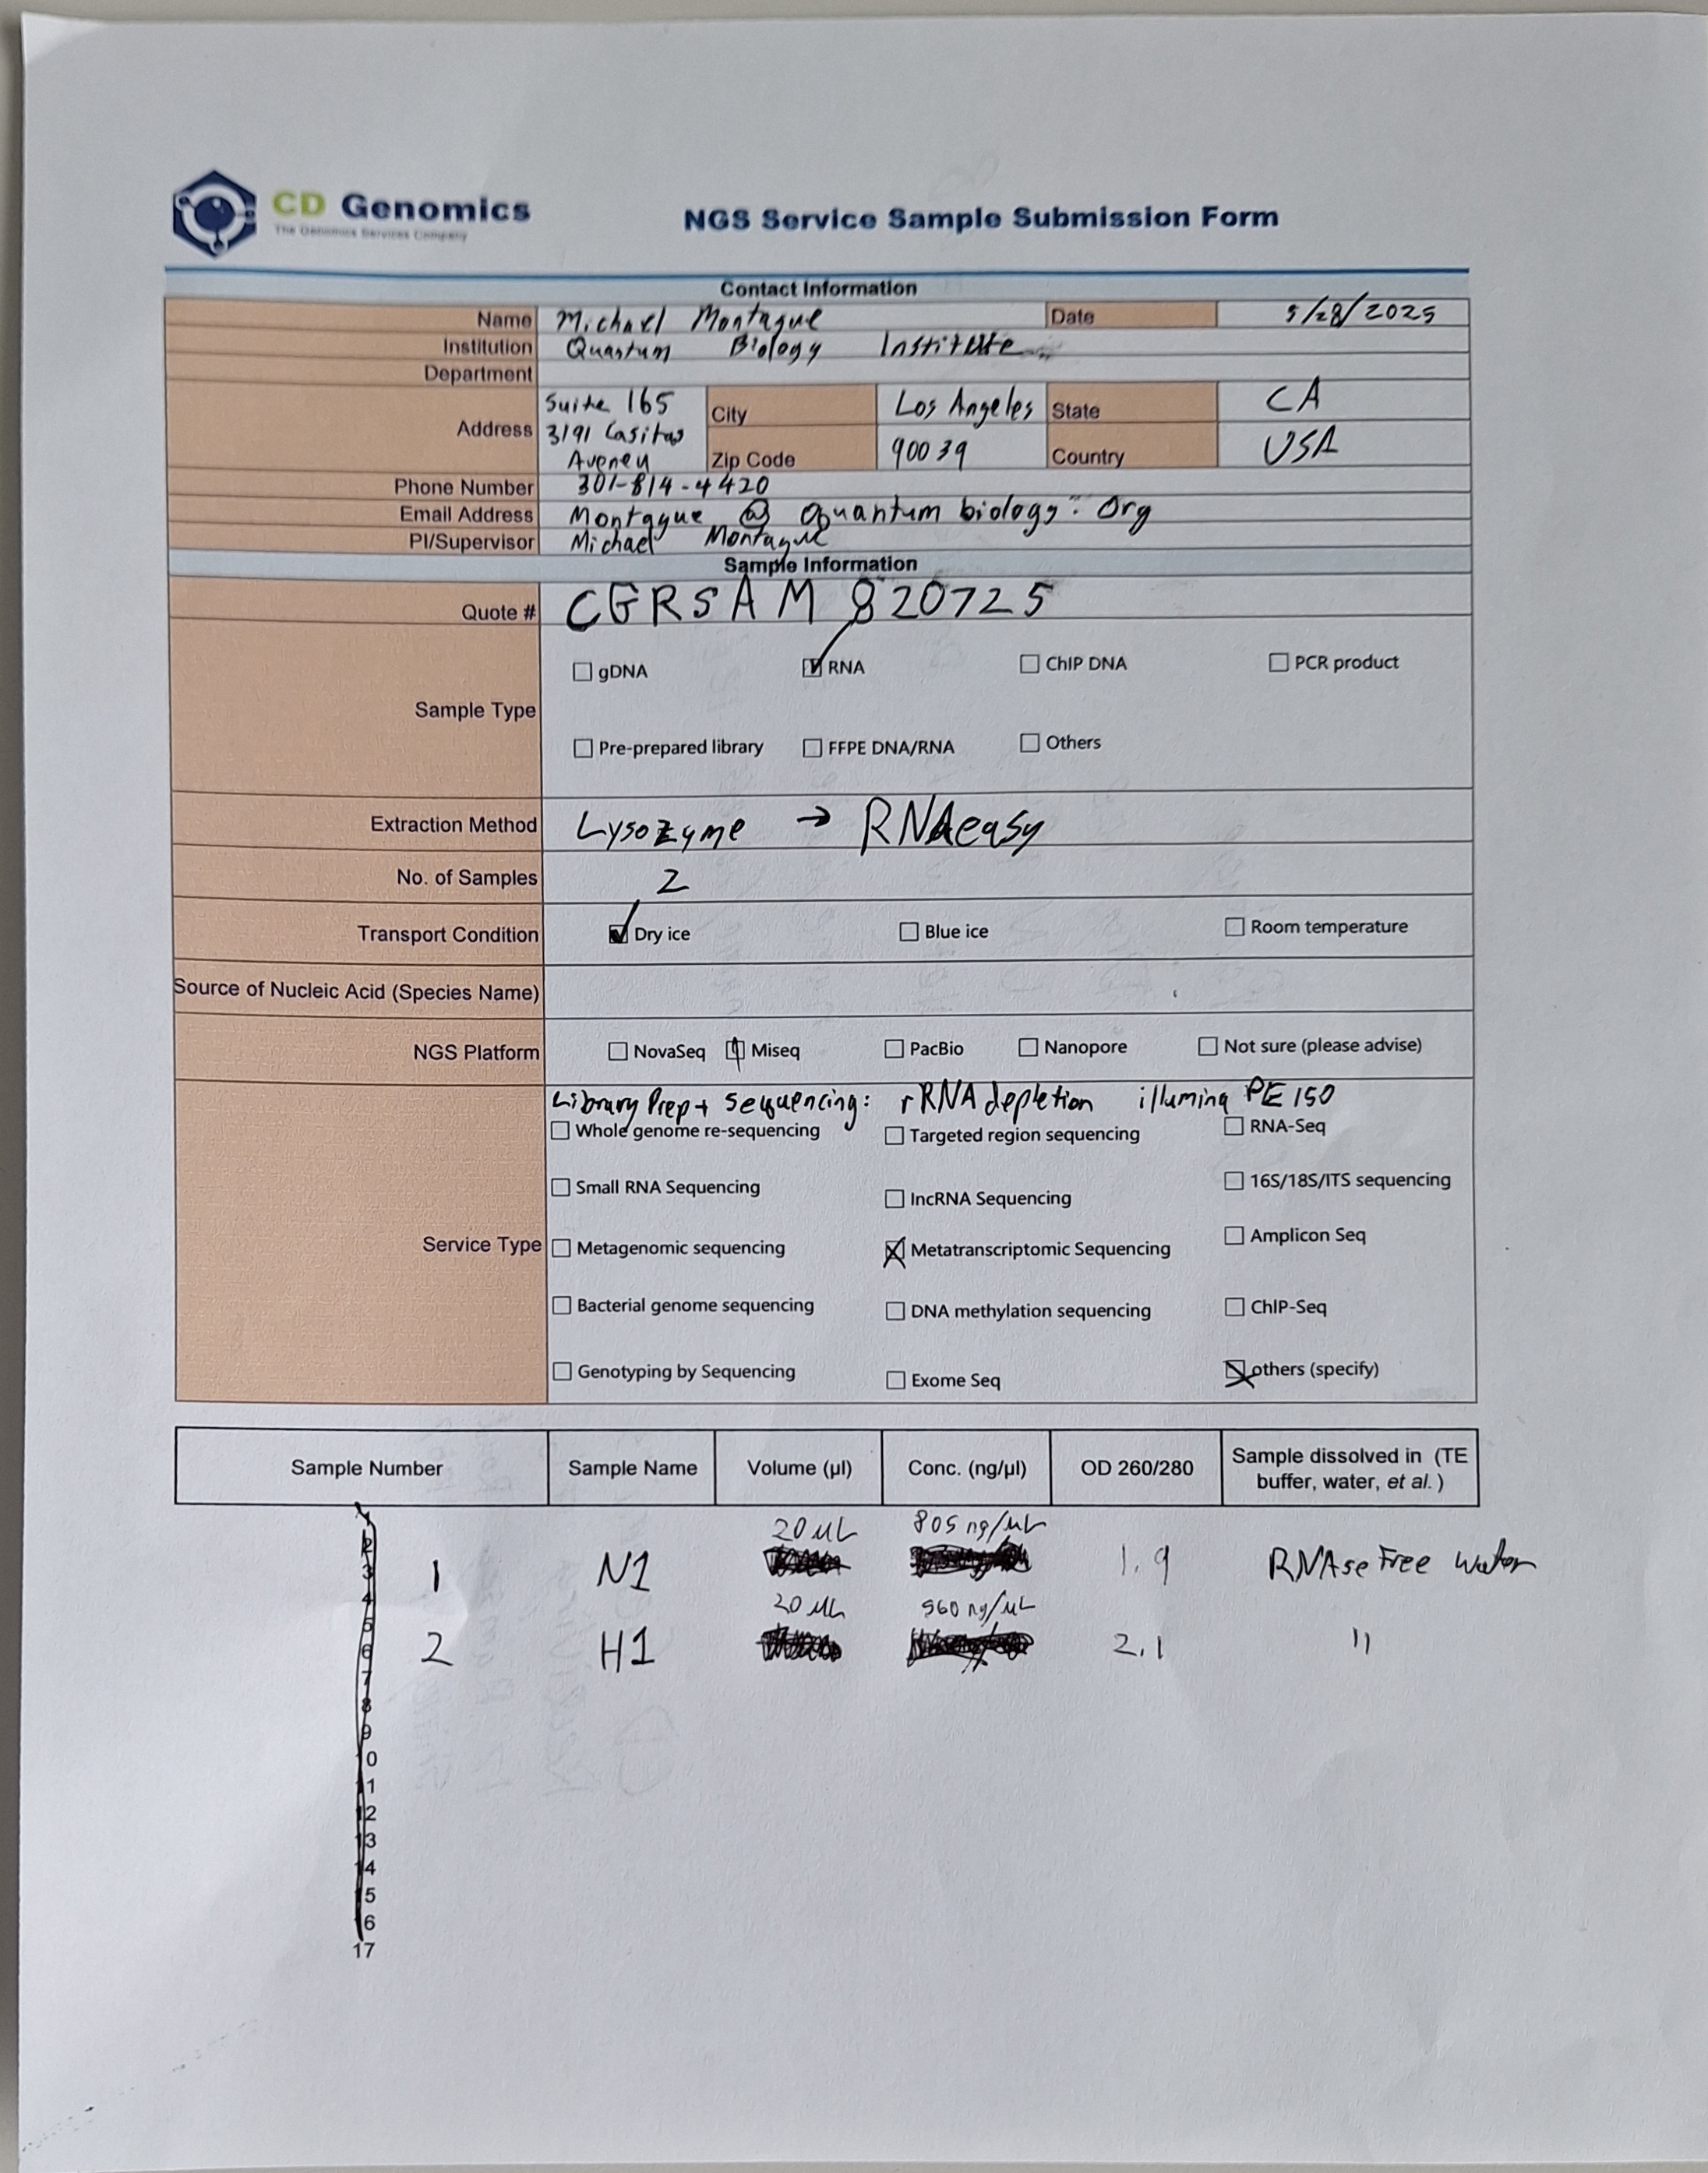 CD Genomics
The Genomics Services Company
NGS Service Sample Submission Form
Contact Information
Name Michael Montague Date 5/28/2025
Institution Quantum Biology Institute
Department
Address Suite 165 3191 Casitas Aveneu City Los Angeles State CA
Zip Code 90039 Country USA
Phone Number 301-814-4420
Email Address Montague @ quantum biology . Org
PI/Supervisor Michael Montague
Sample Information
Quote # CGRSAM 820725
Sample Type gDNA RNA ChIP DNA PCR product
Pre-prepared library FFPE DNA/RNA Others
Extraction Method Lysozyme → RNAeasy
No. of Samples 2
Transport Condition Dry ice Blue ice Room temperature
Source of Nucleic Acid (Species Name)
NGS Platform NovaSeq Miseq PacBio Nanopore Not sure (please advise)
Library Prep + sequencing: rRNA depletion illumina PE 150
Whole genome re-sequencing Targeted region sequencing RNA-Seq
Small RNA Sequencing lncRNA Sequencing 16S/18S/ITS sequencing
Service Type Metagenomic sequencing Metatranscriptomic Sequencing Amplicon Seq
Bacterial genome sequencing DNA methylation sequencing ChIP-Seq
Genotyping by Sequencing Exome Seq others (specify)
Sample Number Sample Name Volume (µl) Conc. (ng/µl) OD 260/280 Sample dissolved in (TE buffer, water, et al. )
1
2
20 µL 805 ng/µL
3 1 N1 1.9 RNAse Free water
4
20 µL 560 ng/µL
5
6 2 H1 2.1 "
7
8
9
10
11
12
13
14
15
16
17